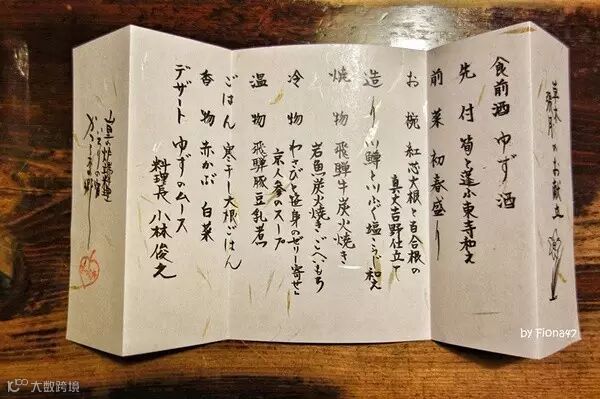 食前酒 ゆず酒
先付 筍と蓮小東寺和え
前菜 初春盛り
お椀 紅芯大根と百合根の
真丈吉野仕立て
造り 川鱒と川ふぐ塩こうじ和え
焼物 飛騨牛炭火焼き
岩魚炭火焼き・ごへいもち
冷物 わさびと笹身のゼリー寄せ
京人参のスープ
温物 飛騨豚豆乳煮
ごはん 寒干し大根ごはん
香物 赤かぶ 白菜
デザート ゆずのムース
料理長 小林俊之
by Fiona47
大数跨境